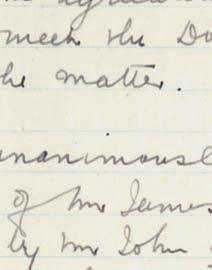 meet the Do
he matter.
nanimousl
of Mr James
by Mr John